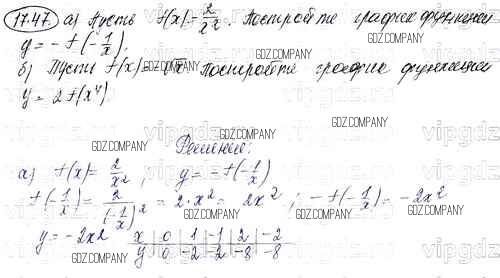 17.47. а) Пусть f(x) = 2/x². Постройте график функции
y = -f(-1/x);
б) Пусть f(x) = √x. Постройте график функции
y = 2f(x⁴).
GDZ.COMPANY
GDZ.COMPANY
GDZ.COMPANY
GDZ.COMPANY
GDZ.COMPANY
GDZ.COMPANY
Решение:
а) f(x) = 2/x²; y = -f(-1/x)
f(-1/x) = 2/(-1/x)² = 2·x² = 2x²; -f(-1/x) = -2x²
y = -2x² x 0 1 -1 2 -2
y 0 -2 -2 -8 -8
GDZ.COMPANY
GDZ.COMPANY
GDZ.COMPANY